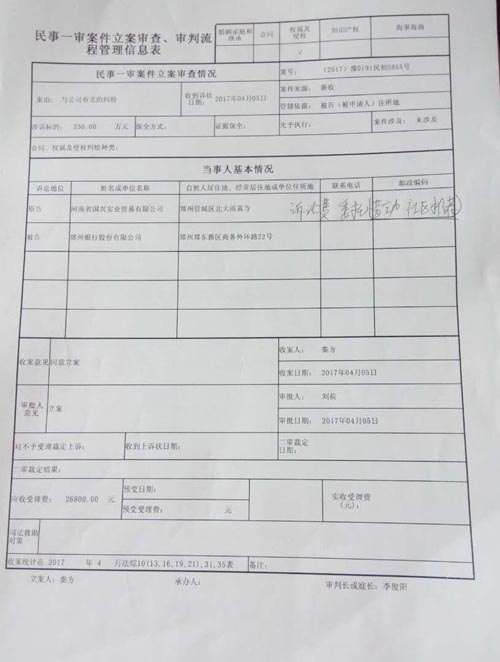 民事一审案件立案审查、审判流程管理信息表
婚姻家庭和继承 合同 权属及侵权 √ 知识产权 海事海商
民事一审案件立案审查情况 案号: (2017)豫0191民初5855号
案由: 与公司有关的纠纷 收到诉状日期: 2017年04月05日 案件来源: 新收
管辖依据: 被告(被申请人)住所地
涉诉标的: 250.00 万元 保全方式: 证据保全: 先予执行: 案件涉及: 未涉及
合同、权属及侵权纠纷种类:
当事人基本情况
诉讼地位 姓名或单位名称 自然人居住地、经常居住地或单位住所地 联系电话 邮政编码
原告 河南省国兴实业贸易有限公司 郑州管城区北大街
被告 郑州银行股份有限公司 郑州郑东新区商务外环路22号
诉讼费
收案意见 同意立案 收案人: 秦方
收案日期: 2017年04月05日
审批人意见 立案 审批人: 刘荷
审批日期: 2017年04月05日
对不予受理裁定上诉: 收到上诉状日期: 二审裁定日期:
二审裁定结果:
应收受理费: 26800.00 元 预交日期: 实收受理费(元):
预交受理费: 元
司法救助对象
收案统计在 2017 年 4 月法综10(13,16,19,21),31,35表 备注:
立案人: 秦方 承办人: 审判长或庭长: 李俊阳